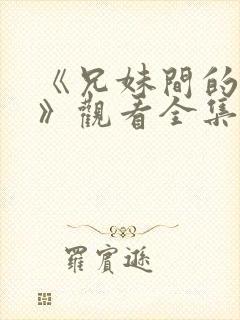 《兄妹間的
》觀看全集
羅賓遜